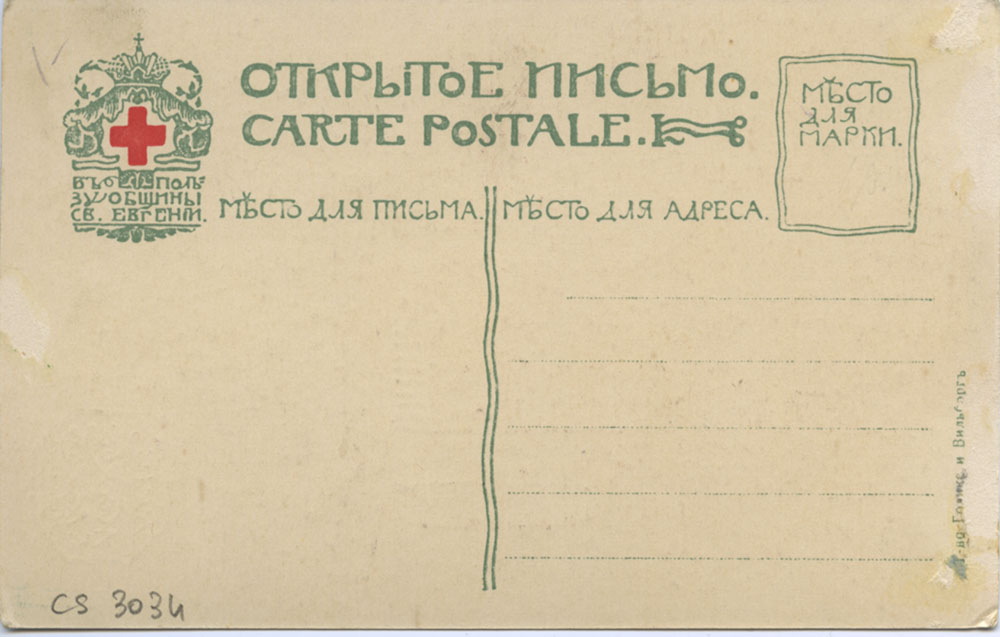 ОТКРЫТОЕ ПИСЬМО.
CARTE POSTALE.
МѢСТО
ДЛЯ
МАРКИ.
ВЪ ПОЛЬ-
ЗУ ОБЩИНЫ
СВ. ЕВГЕНІИ.
МѢСТО ДЛЯ ПИСЬМА.
МѢСТО ДЛЯ АДРЕСА.
Голике и Вильборгъ
CS 3034